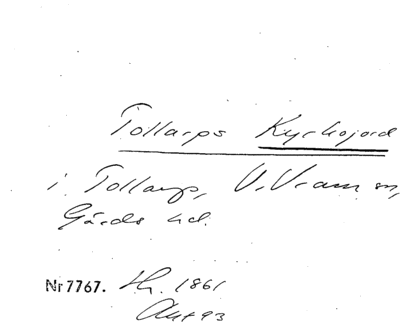 Tollarps Kyrkojord
i Tollarp, V. Vram sn,
Gärds hd.
Nr 7767. Hr. 1861
Akt 93